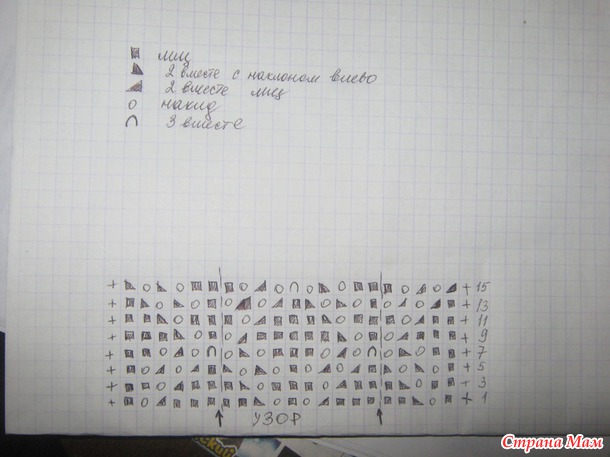 лиц
2 вместе с наклоном влево
2 вместе лиц
накид
3 вместе
+ 15
+ 13
+ 11
+ 9
+ 7
+ 5
+ 3
+ 1
УЗОР
Страна Мам